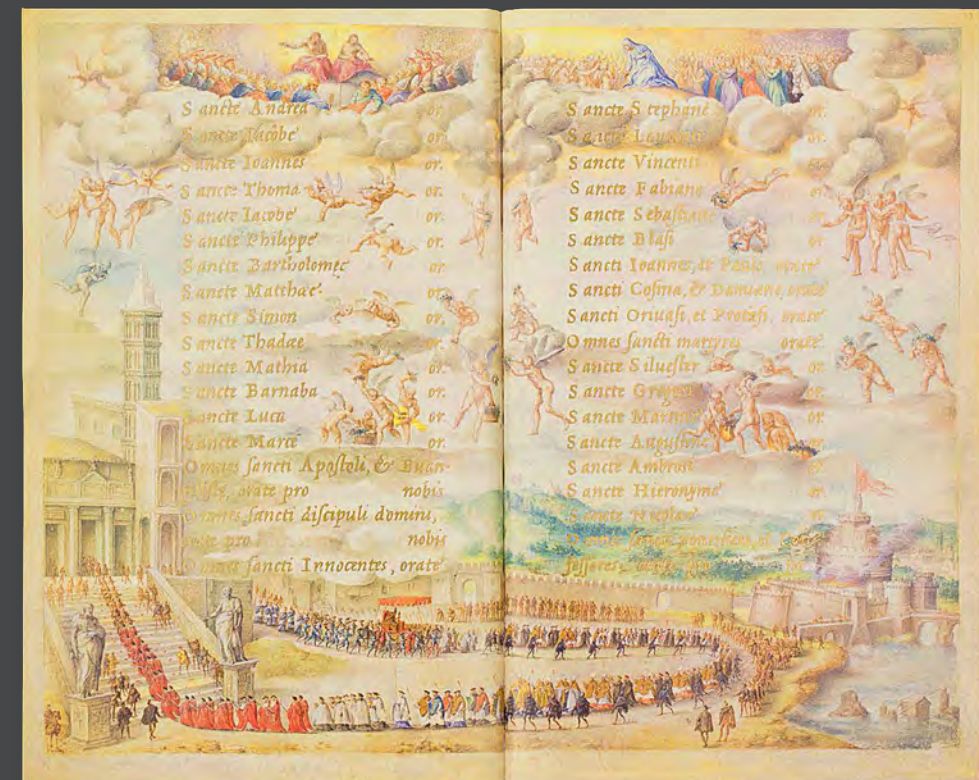 Sancte Andrea or.
Sancte Iacobe or.
Sancte Ioannes or.
Sancte Thoma or.
Sancte Iacobe or.
Sancte Philippe or.
Sancte Bartholomee or.
Sancte Matthae or.
Sancte Simon or.
Sancte Thadae or.
Sancte Mathia or.
Sancte Barnaba or.
Sancte Luca or.
Sancte Marce or.
Omnes sancti Apostoli, & Euan-
orate pro nobis
Omnes sancti discipuli domini,
pro nobis
Omnes sancti Innocentes, orate
Sancte Stephane or.
Sancte or.
Sancte Vincenti or.
Sancte Fabiane or.
Sancte Sebastiane or.
Sancte Blasi or
Sancti Ioannes, et Paule, orate
Sancti Cosma, & Damiane, orate
Sancti et Protasi, orate
Omnes sancti martyres orate
Sancte Siluester or.
Sancte or.
Sancte or.
Sancte Augustine or.
Sancte Ambrosi or
Sancte Hieronyme or
Sancte or.
Omnes sancti et